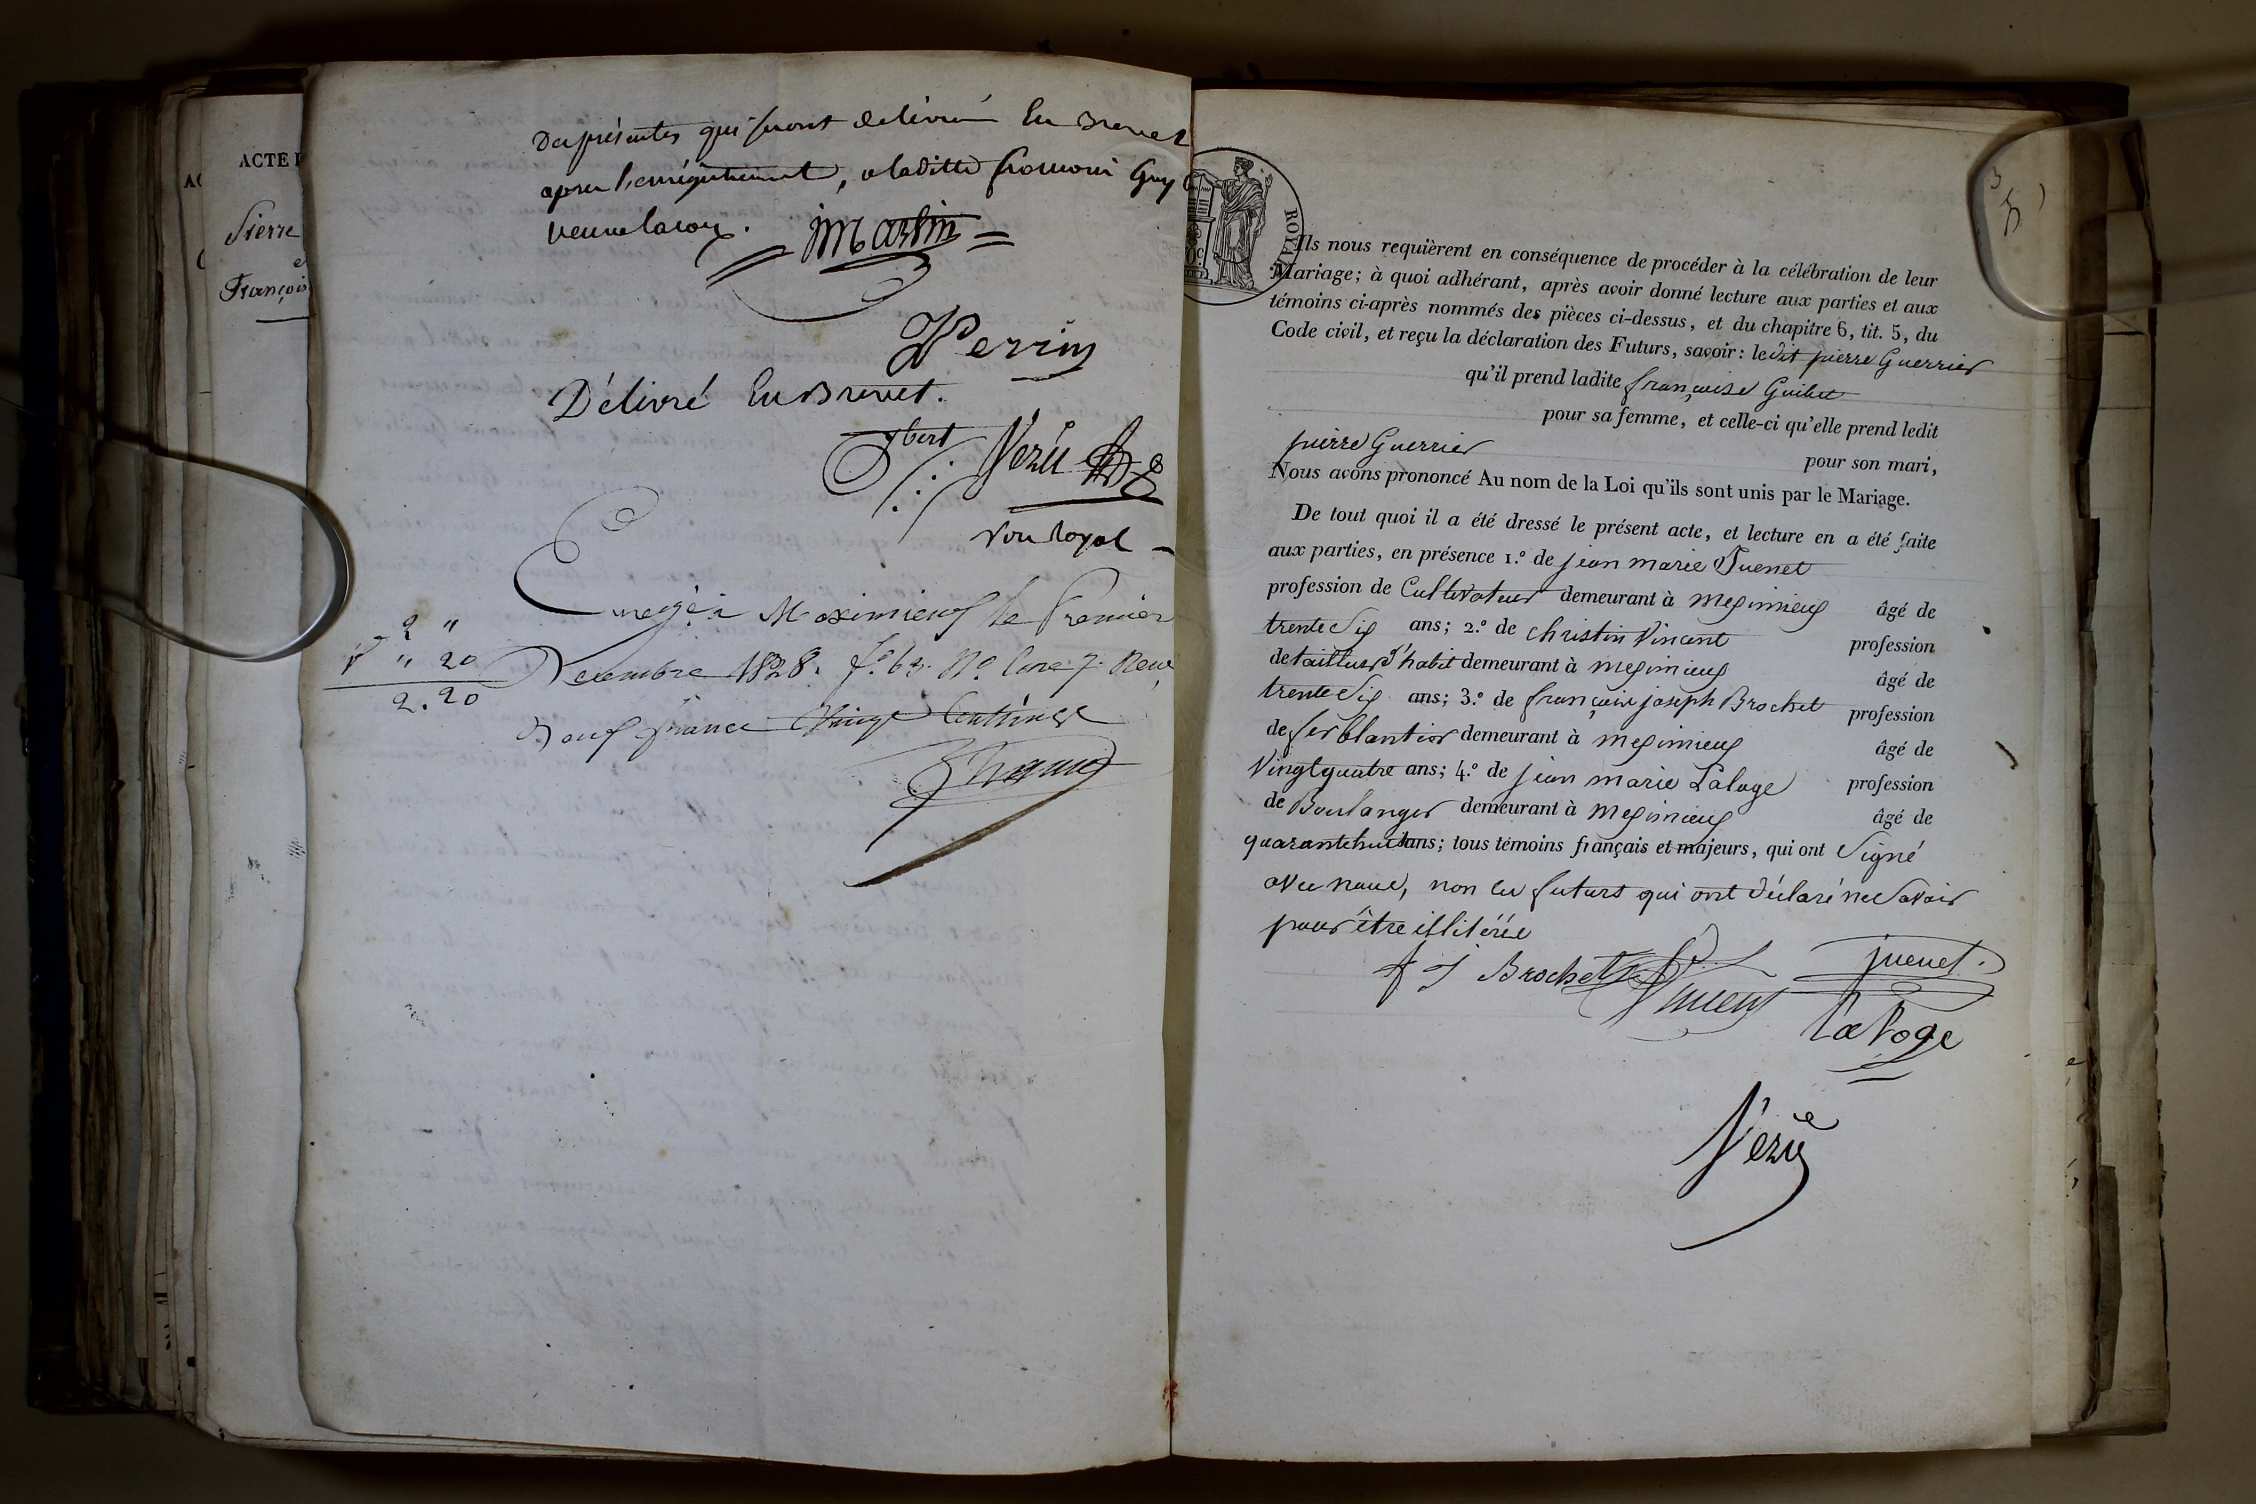 ACTE
Pierre
et
François
Des présentes qui seront délivré En Brevet
apres l'enregistrement, a laditte
veuve lacour. jmartin
JPerrin
Délivré En Brevet.
jbert Vezu
Nre Royal
Enregé à Meximieux le Premier
2 "
" 20
Decembre 1828. fo. 63. Ro. Case 7. Reçu
2.20
Deux francs Vingt Centimes
ROYAL
Ils nous requièrent en conséquence de procéder à la célébration de leur
Mariage; à quoi adhérant, après avoir donné lecture aux parties et aux
témoins ci-après nommés des pièces ci-dessus, et du chapitre 6, tit. 5, du
Code civil, et reçu la déclaration des Futurs, savoir: ledit pierre Guerrier
qu'il prend ladite françoise Guibet
pour sa femme, et celle-ci qu'elle prend ledit
pierre Guerrier pour son mari,
Nous avons prononcé Au nom de la Loi qu'ils sont unis par le Mariage.
De tout quoi il a été dressé le présent acte, et lecture en a été faite
aux parties, en présence 1.º de jean marie Juenet
profession de Cultivateur demeurant à meximieux âgé de
trente Six ans; 2.º de christin Vincent profession
de tailleur d'habit demeurant à meximieux âgé de
trente Six ans; 3.º de françois joseph Brochet profession
de ferblantier demeurant à meximieux âgé de
Vingt quatre ans; 4.º de jean marie Laloge profession
de Boulanger demeurant à meximieux âgé de
quarante huit ans; tous témoins français et majeurs, qui ont Signé
avec nous, non les futurs qui ont déclaré ne Savoir
pour être illiterée
f j Brochet Vincent juenet.
LaLoge
Vezu